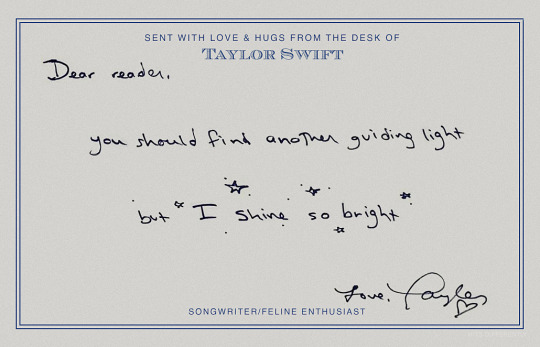 SENT WITH LOVE & HUGS FROM THE DESK OF
TAYLOR SWIFT
Dear reader,
you should find another guiding light
but I shine so bright
Love, Taylor
SONGWRITER/FELINE ENTHUSIAST